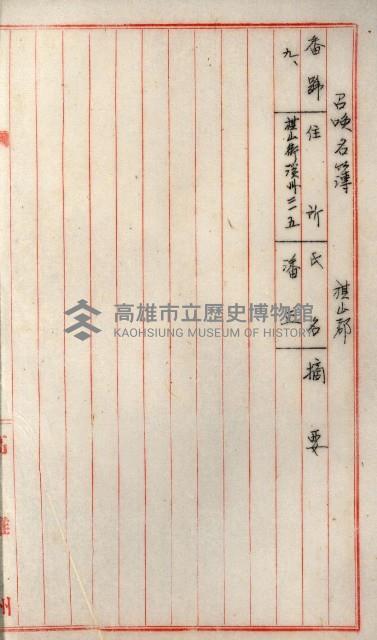 召喚名簿 旗山郡
番號 住所 氏名 摘要
九、 旗山街溪州三一五 潘
高雄市立歷史博物館
KAOHSIUNG MUSEUM OF HISTORY
高雄州